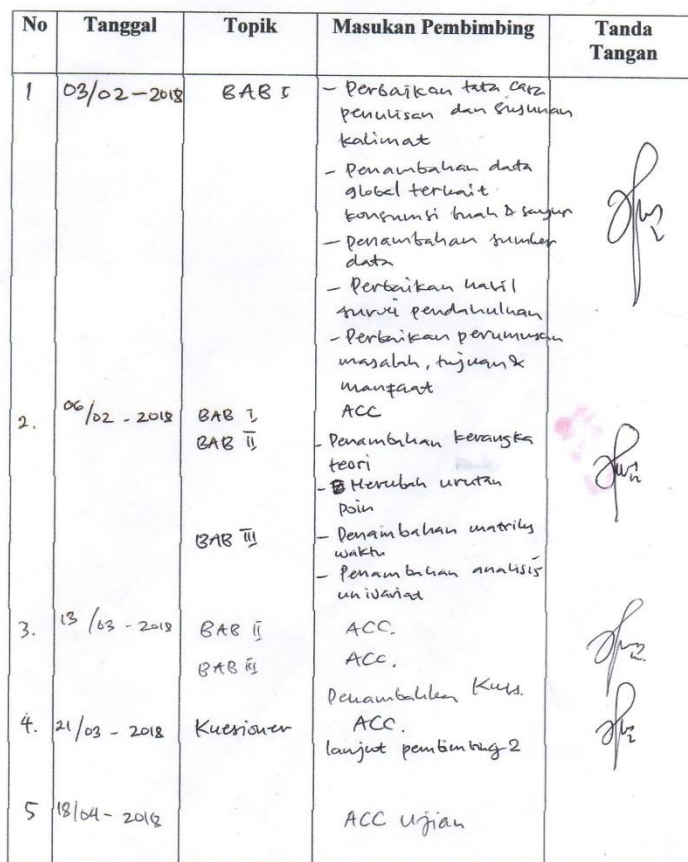 No Tanggal Topik Masukan Pembimbing Tanda
Tangan
1 03/02-2018 BAB I - Perbaikan tata cara
penulisan dan susunan
kalimat
- Penambahan data
global terkait
konsumsi buah & sayur
- Penambahan sumber
data
- Perbaikan hasil
survei pendahuluan
- Perbaikan perumusan
masalah, tujuan &
manfaat
2. 06/02 - 2018 BAB I ACC
BAB II - Penambahan kerangka
teori
- Merubah urutan
Poin
BAB III - Penambahan matriks
waktu
- Penambahan analisis
univariat
3. 13/03 - 2018 BAB II ACC.
BAB III ACC.
4. 21/03 - 2018 Kuesioner ACC.
lanjut pembimbing 2
5 18/04 - 2018 ACC Ujian